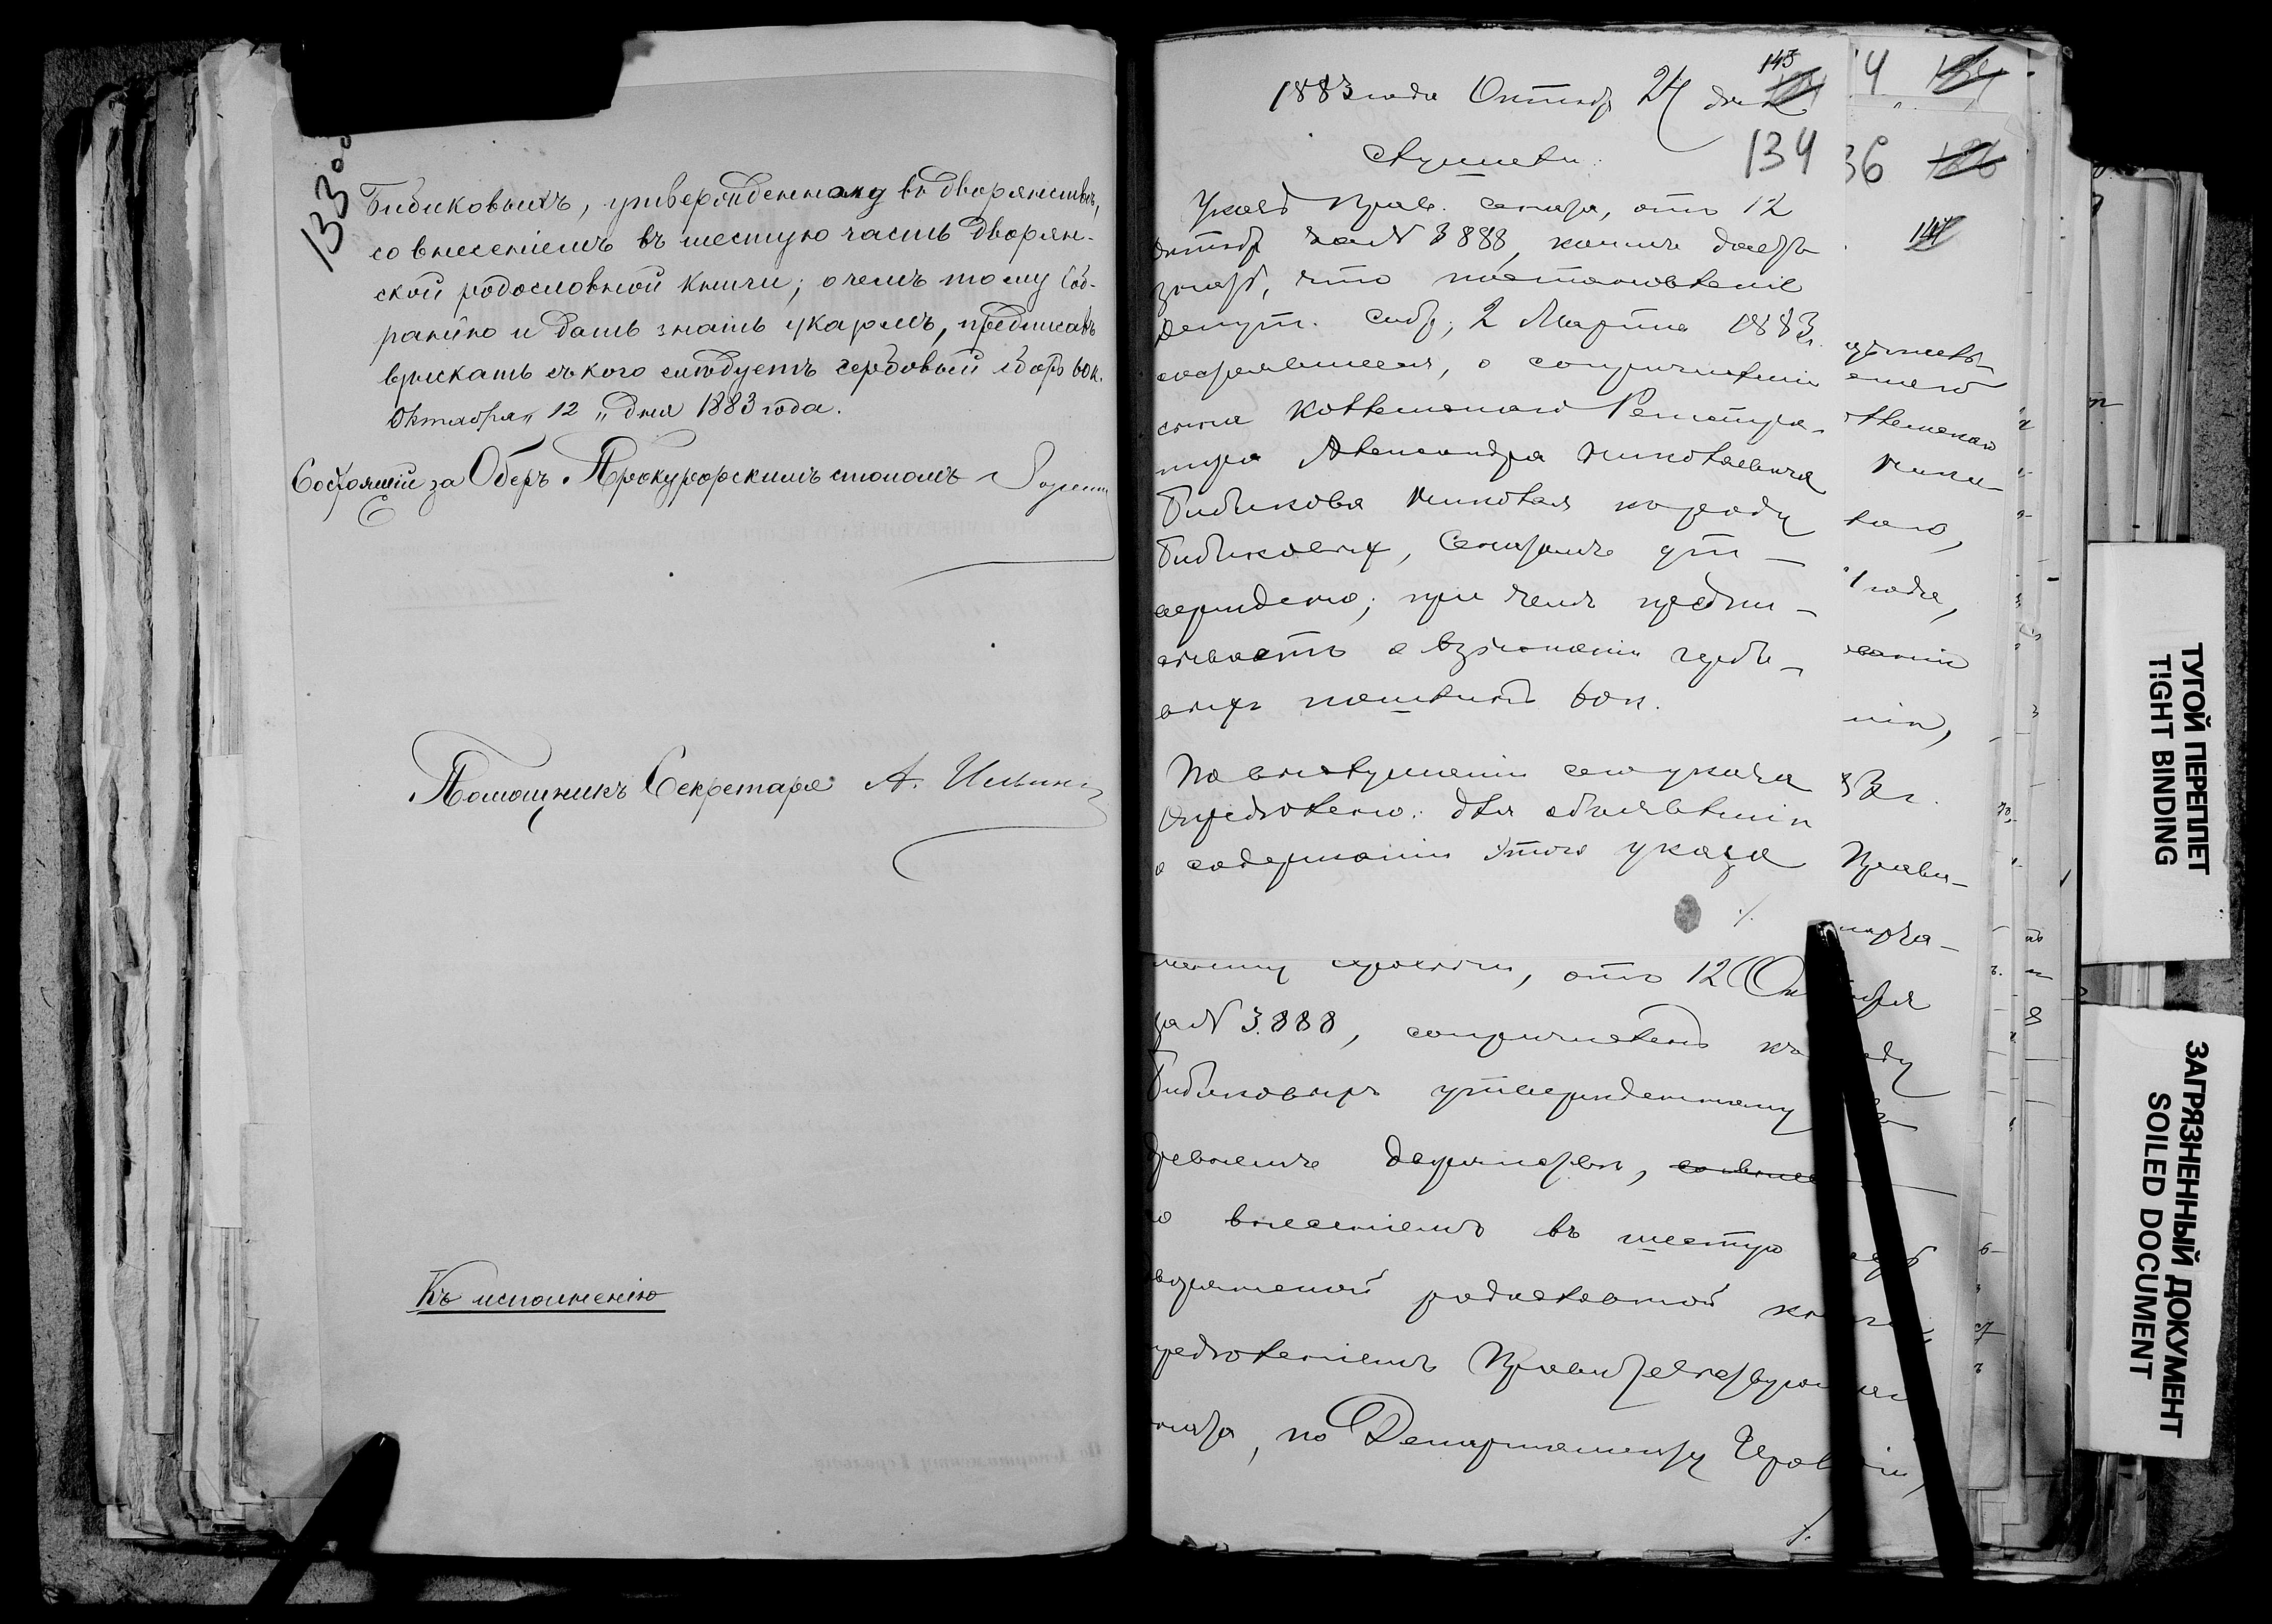 133 об
Бибиковыхъ, утвержденному въ дворянствѣ,
со внесеніемъ въ шестую часть дворян-
ской родословной книги; о чемъ тому Соб-
ранію и дать знать указомъ, предписавъ
взыскать съ кого слѣдуетъ гербовый сборъ 60 к.
Октября „ 12 „ дня 1883 года.
Состоящій за Оберъ-Прокурорскимъ столомъ
Помощникъ Секретаря А. Ильинъ
Къ исполненію
143
1883 года Октяб 24 дня
134
Слушали:
Указъ Прав. Сената, отъ 12
октяб за № 3888, коимъ даетъ
знать, что постановленіе
депут. собр, 2 Марта 1883 г.
состоявшееся, о сопричисленіи
сына Коллежскаго Регистра-
тора Александра Николаевича
Бибикова Николая къ роду
Бибиковыхъ, Сенатомъ ут-
верждено; при чемъ предпи-
сываетъ о взысканіи гербо-
выхъ пошлинъ 60 к.
По выслушаніи сего указа
Опредѣлено: для объявленія
о содержаніи этого указа
./.
герольдіи, отъ 12 Октября
за № 3.888, сопричисленъ къ роду
Бибиковыхъ утвержденному въ
древнемъ дворянствѣ,
со внесеніемъ въ шестую часть
дворянской родословной книги
Правительствующаго
Сената, по Департаменту Герольдіи,
./.
4
36
144
1 года,
83 г.
Прави-
ТУГОЙ ПЕРЕПЛЕТ
TIGHT BINDING
ЗАГРЯЗНЕННЫЙ ДОКУМЕНТ
SOILED DOCUMENT